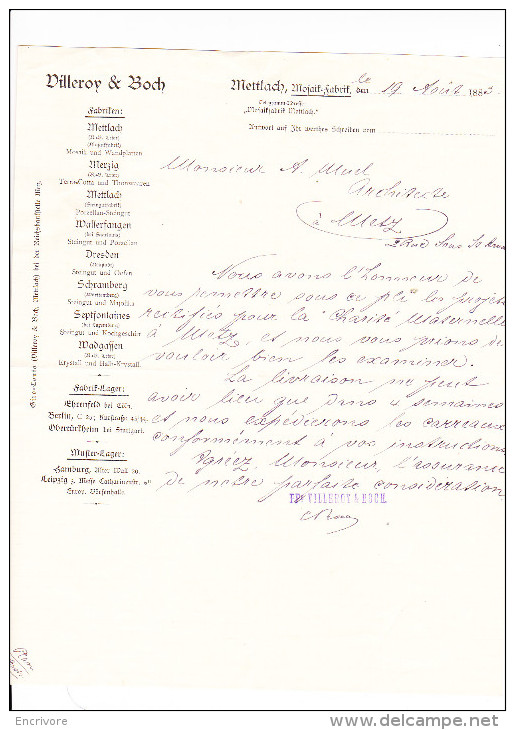 Villeroy & Boch
Mettlach, Mosaik-Fabrik, den le 19 Août 188
Telegramm-Adresse:
„Mosaikfabrik Mettlach."
Antwort auf Ihr werthes Schreiben vom
Fabriken:
Mettlach
(Mosaikfabrik)
Mosaik und Wandplatten
Merzig
Terra-Cotta und Thonwaaren
Mettlach
(Steingutfabrik)
Porzellan-Steingut
Wallerfangen
(bei Saarlouis)
Steingut und Porzellan
Dresden
Steingut und Oefen
Schramberg
(Württemberg)
Steingut und Majolika
Septfontaines
(bei Luxemburg)
Steingut und Kochgeschirr
Wadgassen
Krystall und Halb-Krystall.
Fabrik-Lager:
Ehrenfeld bei Cöln.
Berlin, C
Obertürkheim bei Stuttgart.
Muster-Lager:
Hamburg, Alter Wall
Leipzig z. Messe Catharinenstr.
Börsenhalle
Giro-Conto (Villeroy & Boch, Mettlach) bei der Reichsbankstelle Metz.
Monsieur A.
Architecte
à Metz
2 Rue
Nous avons l'honneur de
vous remettre sous ce pli les projets
rectifiés pour la Charité Maternelle
à Metz, et nous vous prions de
vouloir bien les examiner.
La livraison ne peut
avoir lieu que dans 4 semaines
et nous expédierons les carreaux
conformément à vos instructions
Agréez, Monsieur, l'assurance
de notre parfaite considération
VILLEROY & BOCH.
Encrivore
www.delcampe.net